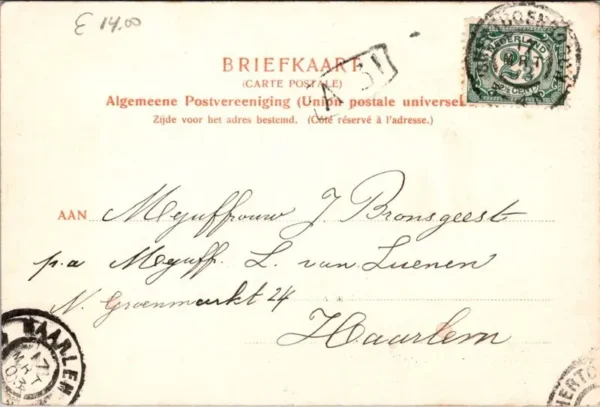 £ 14.00
BRIEFKAART
(CARTE POSTALE)
Algemeene Postvereeniging (Union postale universel
Zijde voor het adres bestemd. (Côté réservé à l'adresse.)
A 31
NEDERLAND
2½
CENT
MRT
AAN Mejuffrouw J. Bronsgeest
p.a Mejuff. L. van Luenen
N. Groenmarkt 24
Haarlem
HAARLEM
17
MRT
03
HERTO